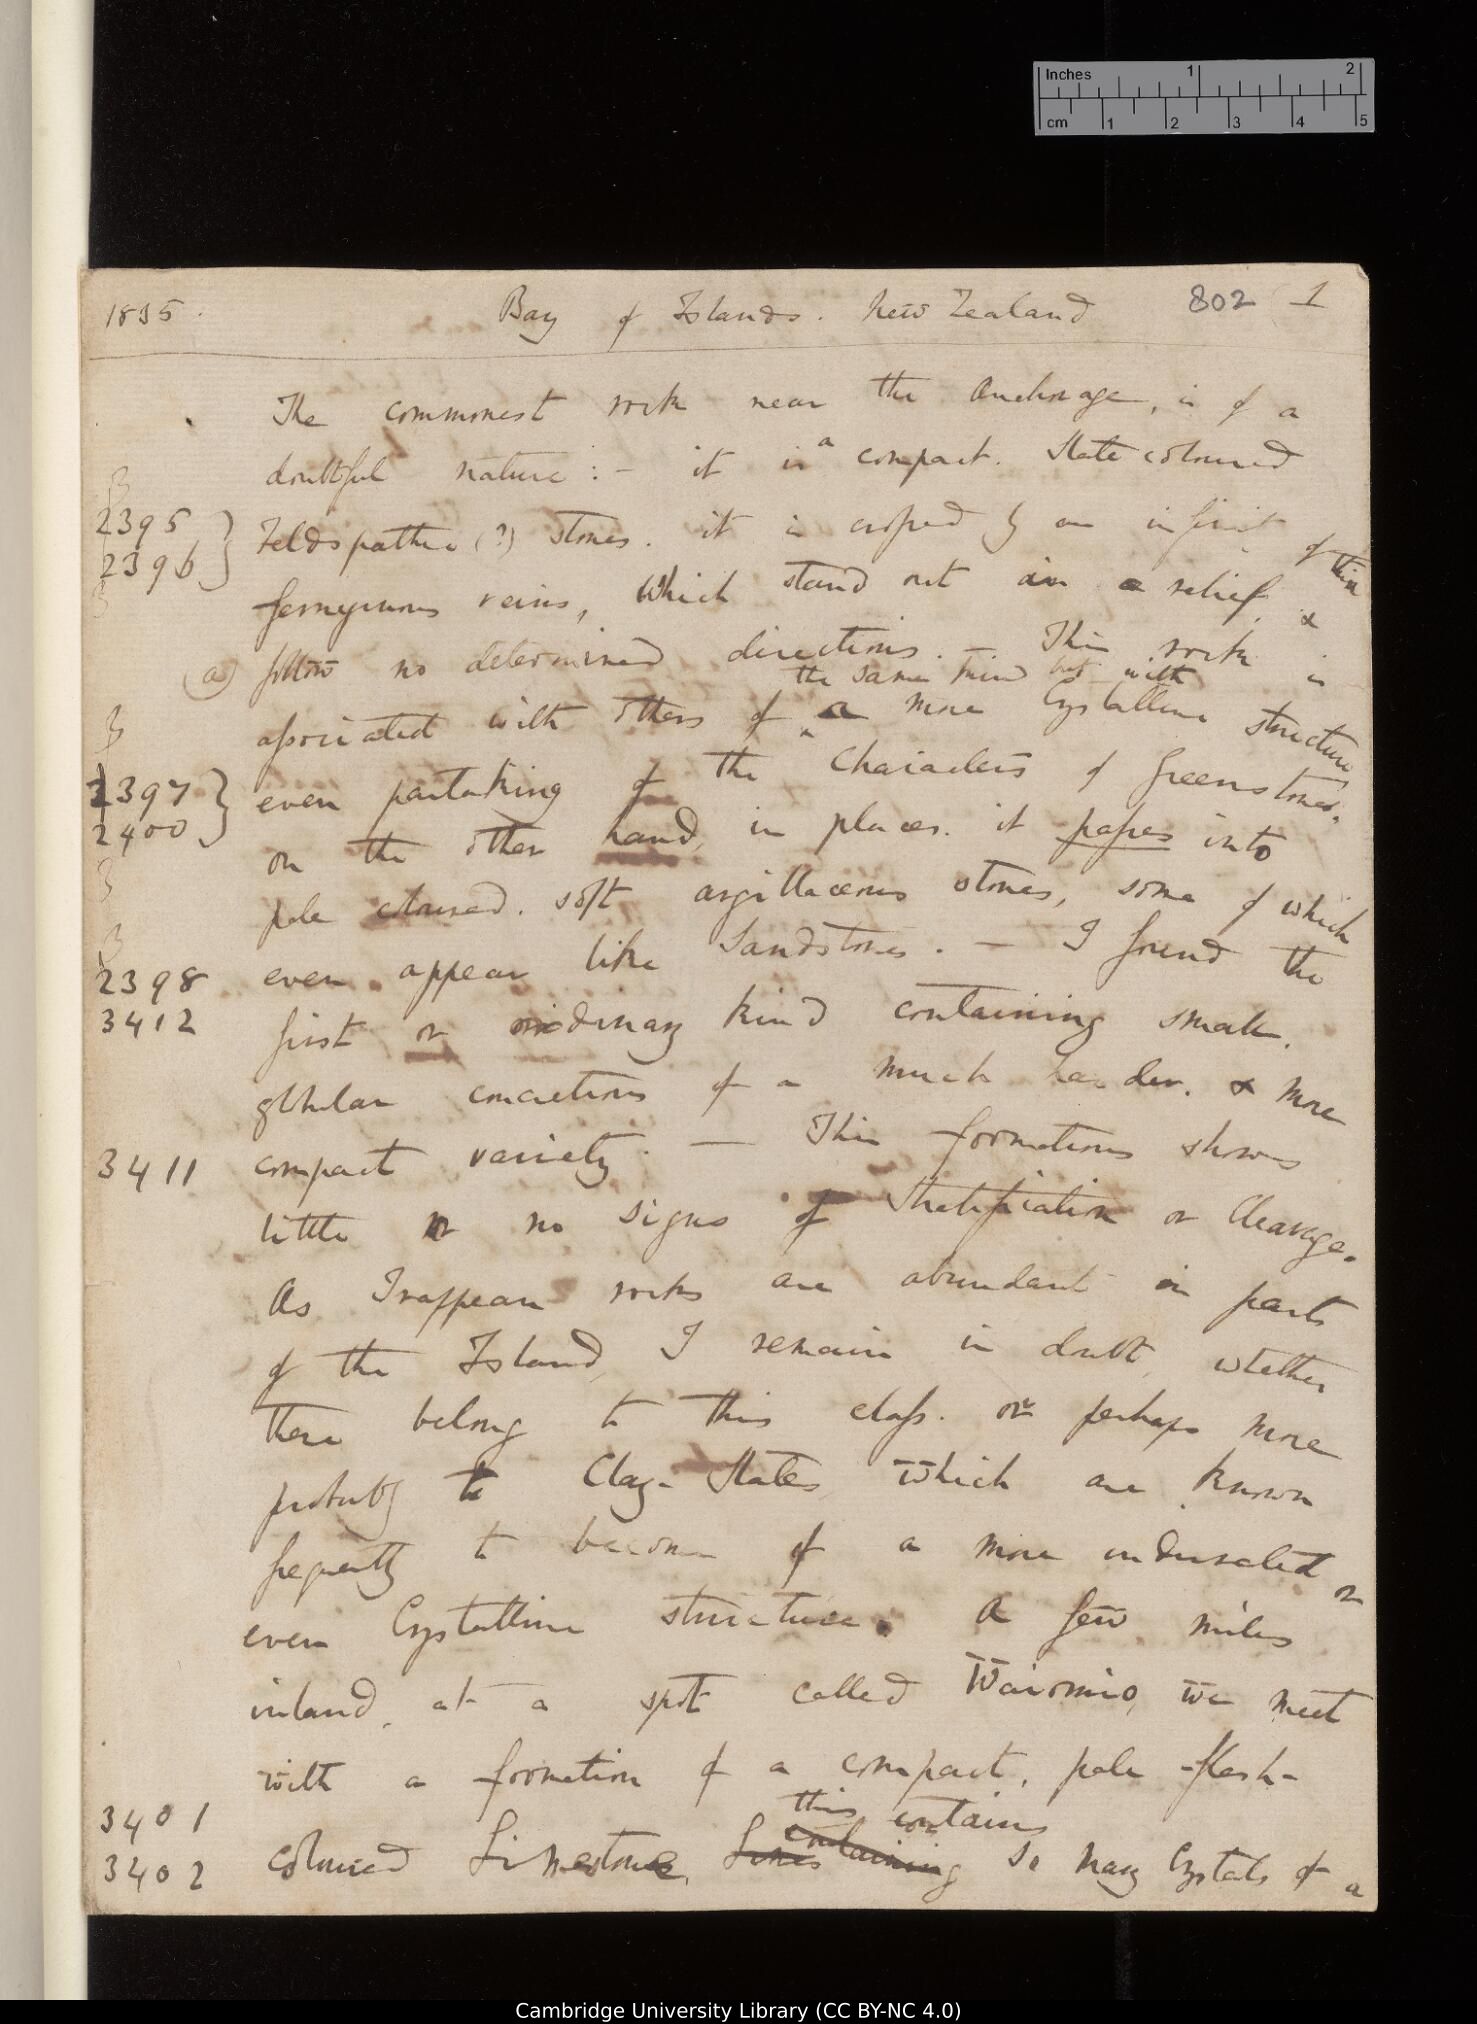 Inches 1 2
cm 1 2 3 4 5
1835. Bay of Islands. New Zealand 802 1
The commonest rock near the anchorage, is of a
doubtful nature: - it is a compact. slate coloured
3
2395 } Feldspathic (?) stones. it is crossed by an infinit of thin
2396
3
ferruginous veins, which stand out in a relief, &
(a) follow no determined directions. — This rock is
the same kind but with
associated with others of a more Crystalline structure
3
2397 } even partaking of the characters of Greenstones.
2400
on the other hand, in places. it passes into
3
pale coloured. soft argillaceous stones, some of which
3
2398 even appear like Sandstones. — I found the
3412 first or ordinary kind containing small.
globular concretions of a much harder. & more
3411 compact variety. — This formations shows
little or no signs of Stratification or Cleavage.
As Trappean rocks are abundant in parts
of the Island, I remain in doubt, whether
these belong to this class. or perhaps more
probably to Clay-Slates, which are known
frequently to become of a more indurated or
even Crystalline structure. A few miles
inland, at a spot called Waiomio, we meet
with a formation of a compact, pale flesh-
3401 this contains
3402 coloured Limestone, Limes containing so many Crystals of a
Cambridge University Library (CC BY-NC 4.0)